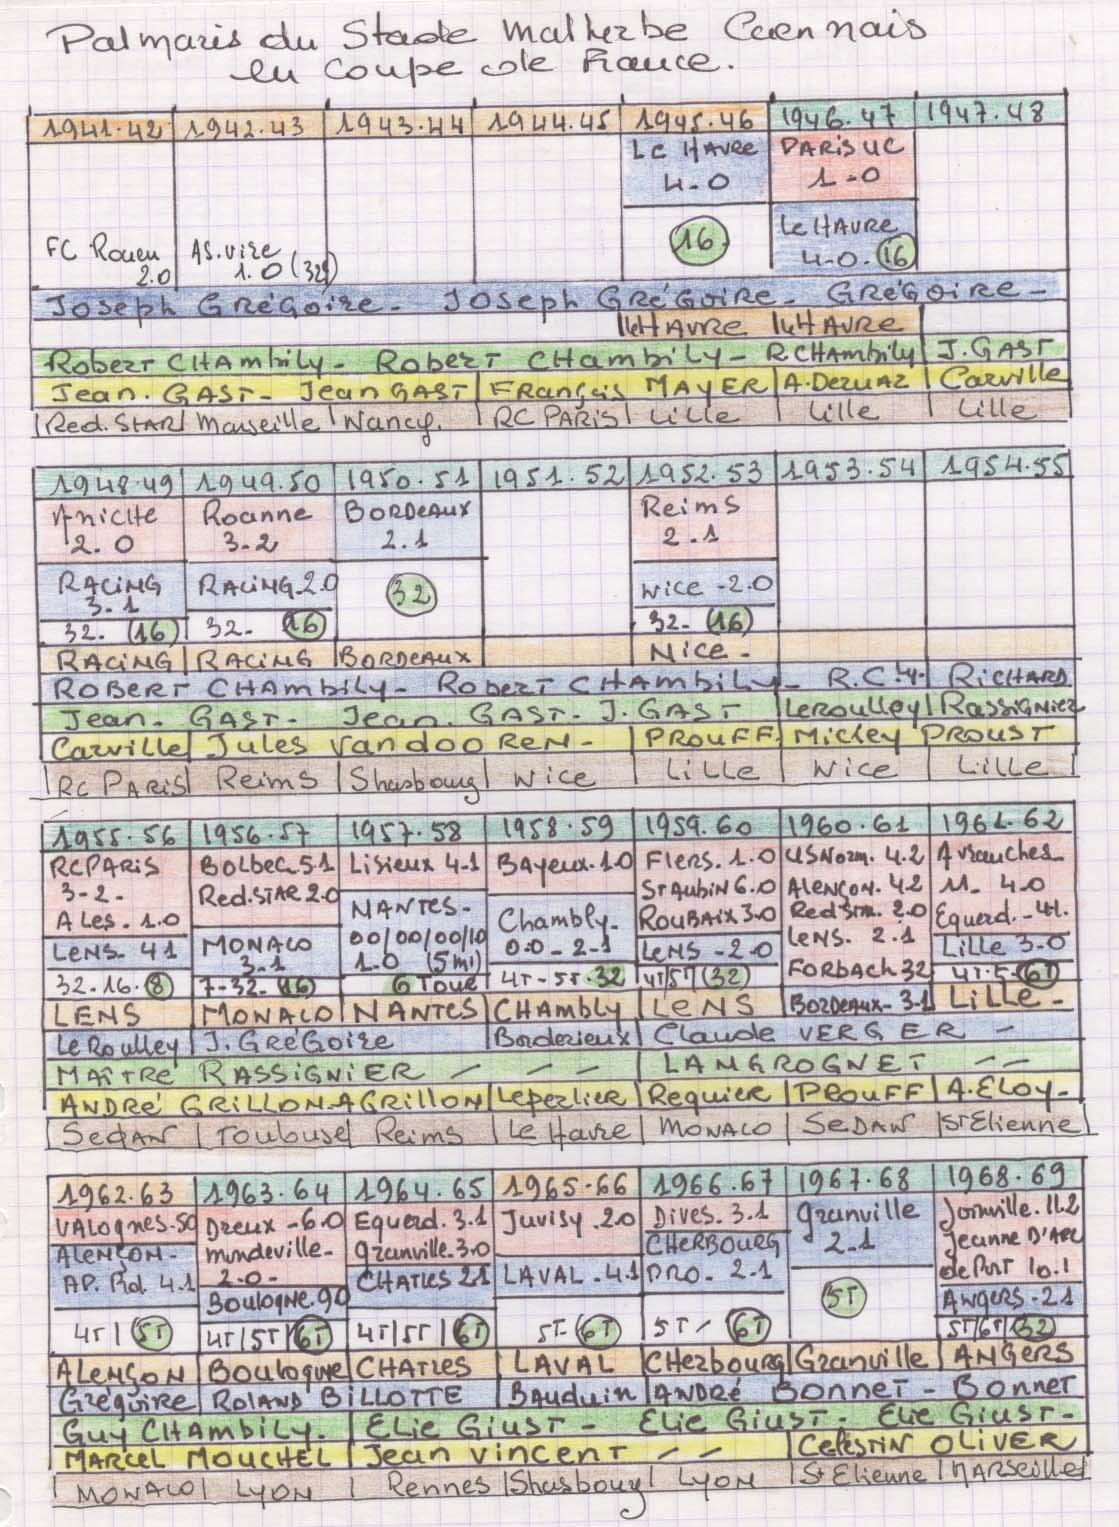 Palmaris du Stade Malherbe Caennais
en Coupe de France.
1941.42 1942.43 1943.44 1944.45 1945.46 1946.47 1947.48
Le HAVRE PARIS UC
4-0 1-0
FC Rouen AS.Vire 16 Le HAVRE
2.0 1.0 (32) 4-0. 16
Joseph GRéGoire - Joseph GRéGOIRE - GRéGOIRE -
le HAVRE le HAVRE
Robert CHAmbily - Robert CHambily - R.CHAmbily J.GAST
Jean. GAST - Jean GAST François MAYER A.Deruaz Carville
Red.STAR Marseille Nancy. RC PARIS Lille Lille Lille
1948.49 1949.50 1950.51 1951.52 1952.53 1953.54 1954.55
Aniche Roanne BORDEAUX Reims
2.0 3-2 2.1 2.1
RACING RACING.2.0 32 Nice -2.0
3.1
32. (16) 32- 16 32- (16)
RACING RACING BORDEAUX Nice -
ROBERT CHAmbily - Robert CHAmbily - R.C.H. RiCHARD
Jean - GAST - Jean. GAST - J. GAST LeRoulley RASSiGNier
Carville Jules VandooREN - PROUFF Mickey PROUST
RC PARIS Reims Strasbourg Nice Lille Nice Lille
1955.56 1956.57 1957.58 1958.59 1959.60 1960.61 1961.62
RCPARIS Bolbec.5.1 Lisieux 4.1 BAyeux.1.0 Flers. 1.0 USNorm. 4.2 Avranches
3-2- Red.STAR 2.0 St Aubin 6.0 ALENÇON. 4.2 11. 4.0
A Les. 1.0 NANTES- Chambly. ROUBAIX 3.0 Red Star. 2.0 Equerd. -4.1.
LeNS. 4.1 MONACO 00/00/00/10 0.0 - 2-1 LeNS -2.0 LeNS. 2.1 Lille 3.0
3-1 1.0 (5mi)
32.16.8 7-32-16 6 Tour 4T-5T.32 4T/5T (32) FORbach 32 4T.5-(6T)
LENS MONACO NANTES CHAmbly LeNS BORDEAUX- 3.1 LiLLe -
Le Roulley J.GRéGoire Borderieux Claude VERGER -
MAiTRe RASSiGNiER - - - LAMGROGNET - -
ANDRé GRiLLON-AGRILLON Leperlier Requier PROUFF A.ELOY-
SeDAN Toulouse Reims Le Havre MONACO SeDAN St Etienne
1962.63 1963.64 1964.65 1965.66 1966.67 1967.68 1968.69
VALognes.50 Dreux -6.0 Equerd.3.1 Juvisy .2.0 Dives. 3.1 Granville Joinville. 11.2
ALENÇON - mondeville- Granville.3.0 CHeRBOURG 2.1 Jeanne D'ARC
AP. Prol. 4.1 2.0- CHATRES 2.1 LAVAL .4.1 PRO. 2.1 de Port 10.1
Boulogne.90 5T ANgers -2.1
4T/ 5T 4T/5T/6T 4T/5T/6T 5T-(6T) 5T / 6T 5T/6T/32
ALeNÇON Boulogne CHATRES LAVAL CHerbourg Granville ANGERS
Grégoire ROLAND BiLLOTTE BAuduin ANDRé Bonnet - Bonnet
Guy CHAmbily. Elie Giust - Elie Giust - Elie Giust -
MARCeL MOUCHEL Jean Vincent - - CelesTiN OLiVER
MONACO LYON Rennes Strasbourg LYON St Etienne MARSeilles